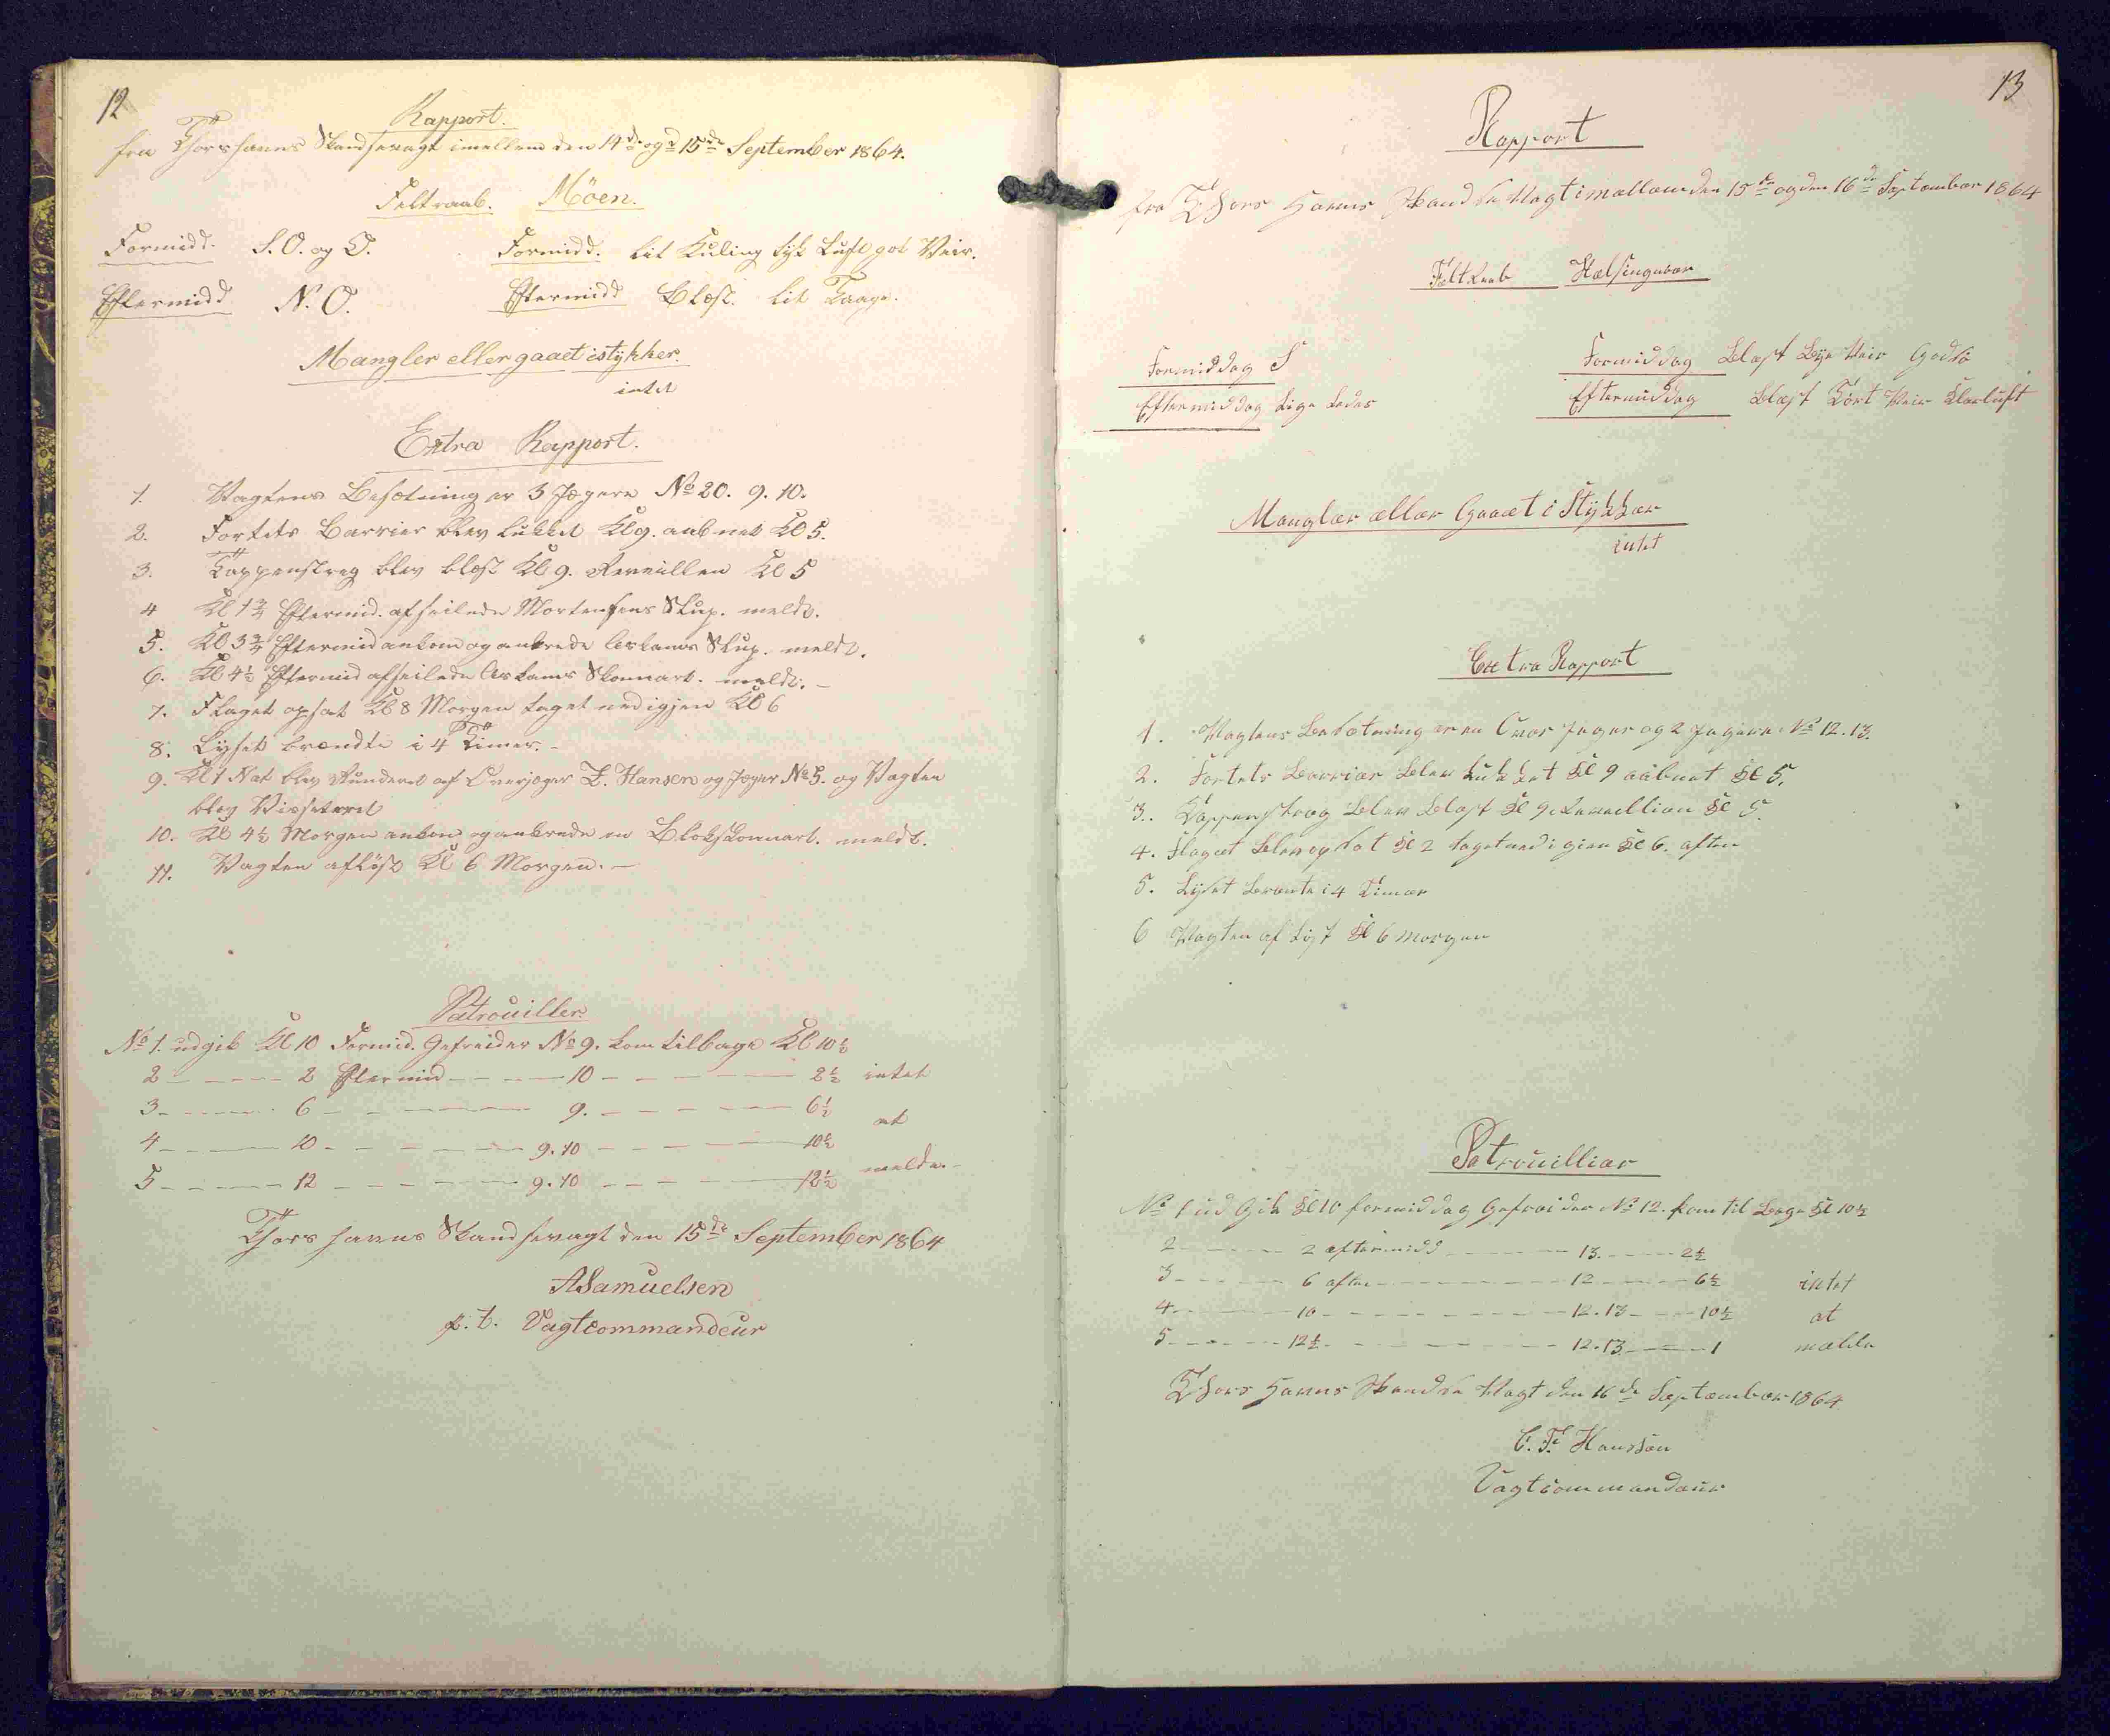 12
Rapport.
fra Thorshavns Skandsevagt imellem den 14de og 15de September 1864.
Feltraab. Möen.
Formidd. S.O. og O. Formidd. lit Kuling tyk Luft got Veir.
Eftermidd N.O. Eftermidd Blæst. lit Taage.
Mangler eller gaaet istykker.
intet
Extra Rapport.
1. Vagtens Besætning er 3 Jægere No 20. 9. 10.
2. Fortets Barrier blev lukket Kl 9. aabnet Kl 5.
3. Tappenstreg blev blæst Kl 9. Reveillen Kl 5
4 Kl 1 3/4 Eftermid. afseilede Mortensens Slup. meldt.
5. Kl 3 3/4 Eftermid ankom og ankrede Slup. meldt.
6. Kl 4 1/2 Eftermid afseilede Skonnart. meldt. –
7. Flaget opsat Kl 8 Morgen taget ned igjen Kl 6
8. Lyset brændte i 4 Timer. –
9. Kl 1 Nat blev Runderet af Overjæger Z. Hansen og Jæger No 5. og Vagten
blev Visseteret
10. Kl 4 1/2 Morgen ankom og ankrede en Skonnart. meldt.
11. Vagten afløst Kl 6 Morgen. –
Patrouiller.
No 1. udgik Kl 10 Formid. Gefreider No 9. kom tilbage Kl 10 1/2
2 – – – – 2 Eftermid – – – – 10 – – – – 2 1/2 intet
3 – – – – 6 – – – – 9. – – – – 6 1/2 at
4 – – – – 10 – – – – 9. 10 – – – – 10 1/2
5 – – – – 12 – – – – 9. 10 – – – – 12 1/2 melde. –
Thorshavns Skandsevagt den 15de September 1864
A Samuelsen
p. t. Vagtcommandeur
13
Rapport
fra Thors Havns Skandse Vagt imellem den 15de og den 16de September 1864
Feltraab Helsingøer
Formiddag S Formiddag Blæst Bye Veir God Sö
Eftermiddag Lige Ledes Eftermiddag Blæst Tört Veir Klar luft
Mangler eller Gaaet i Stykker
intet
Extra Rapport
1. Vagtens Besætning er en Over Jeger og 2 Jegere No 12. 13.
2. Fortets Barrier Blev Lukket Kl 9 aabnet Kl 5.
3. Tappenstreg Blev Blæst Kl 9 Reveillien Kl 5.
4. Flaget Blev op Sat Kl 2 taget ned i gien Kl 6. aften
5. Lyset Brænte i 4 Timer
6 Vagten af Løst Kl 6 Morgen
Patrouillier
No 1 ud Gik Kl 10 formiddag Gefreider No 12. kom til Bage Kl 10 1/2
2 – – – – 2 eftermidd – – – – 13. – – – – 2 1/2
3 – – – – 6 aften – – – – 12 – – – – 6 1/2 intet
4 – – – – 10 – – – – 12. 13 – – – – 10 1/2 at
5 – – – – 12 1/2 – – – – 12. 13 – – – – 1 melde
Thors Havns Skandse Vagt den 16de September 1864.
C. F. Hanssen
Vagtcommandeur